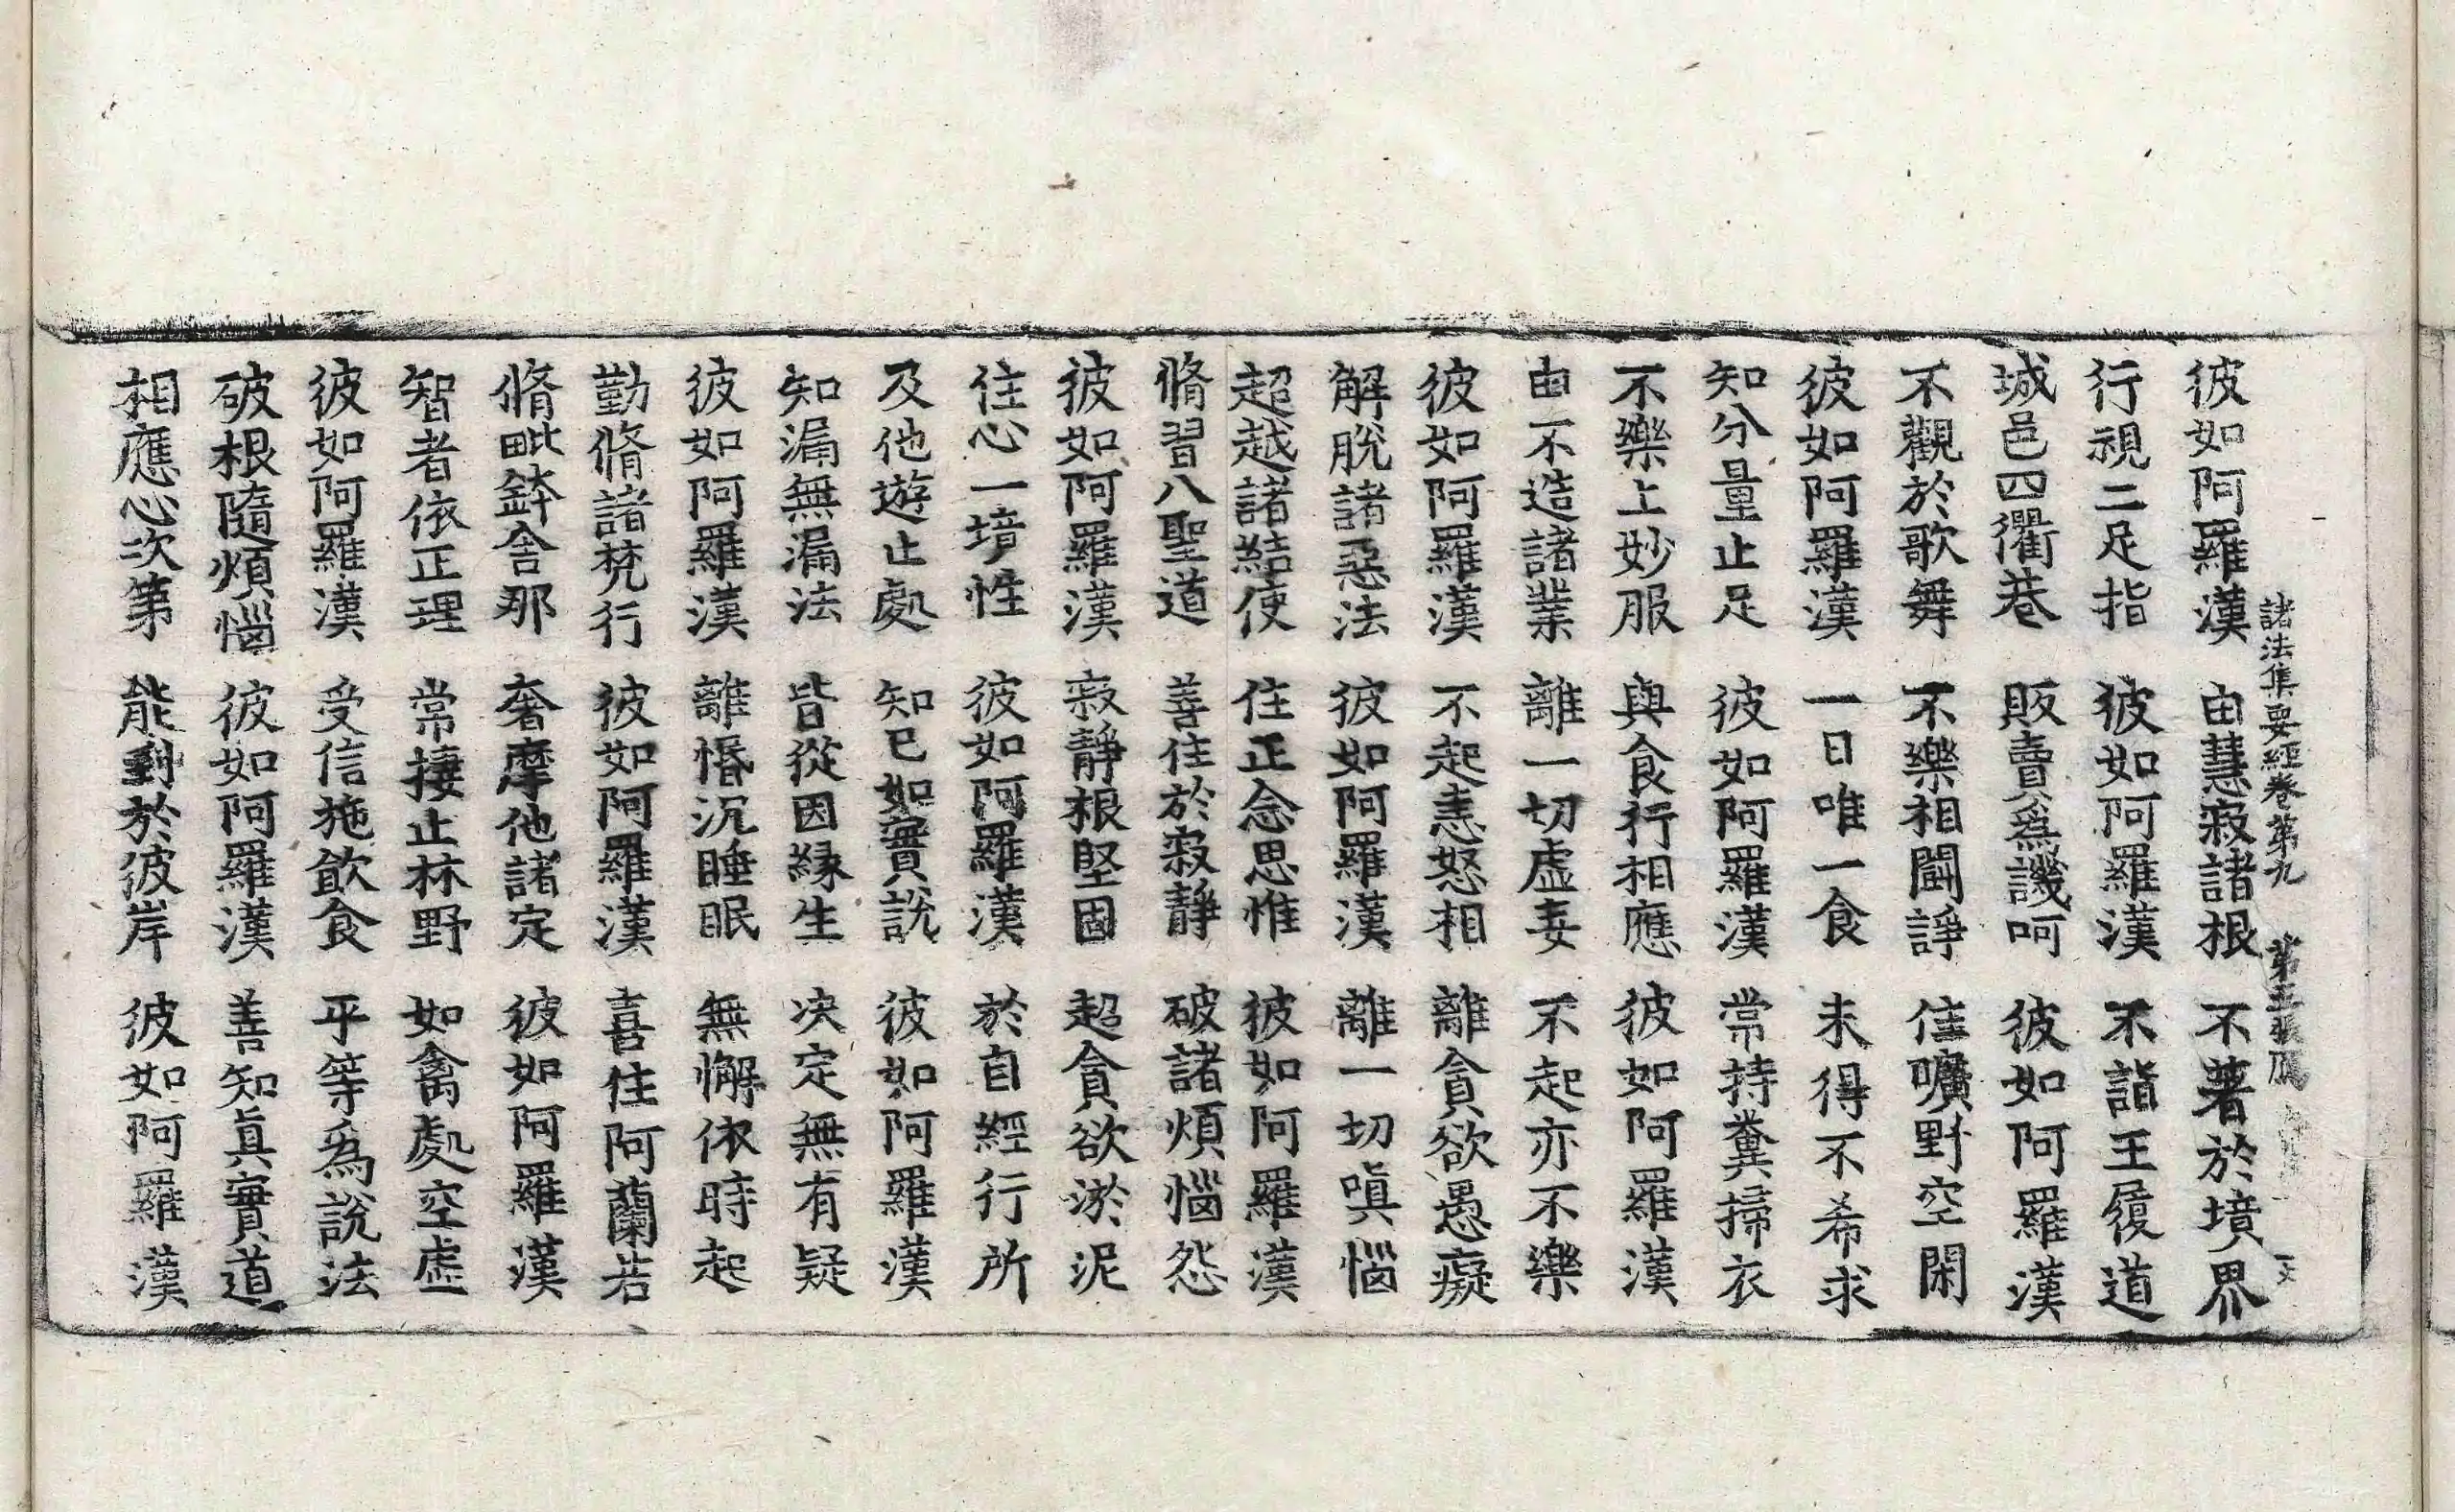 諸法集要經卷第九 第五張
彼如阿羅漢 由慧寂諸根 不著於境界
行視二足指 彼如阿羅漢 不詣王履道
城邑四衢巷 販賣爲譏呵 彼如阿羅漢
不觀於歌舞 不樂相鬪諍 住曠野空閑
彼如阿羅漢 一日唯一食 未得不希求
知分量止足 彼如阿羅漢 常持糞掃衣
不樂上妙服 與食行相應 彼如阿羅漢
由不造諸業 離一切虛妄 不起亦不樂
彼如阿羅漢 不起恚怒相 離貪欲愚癡
解脫諸惡法 彼如阿羅漢 離一切嗔惱
超越諸結使 住正念思惟 彼如阿羅漢
脩習八聖道 善住於寂靜 破諸煩惱怨
彼如阿羅漢 寂靜根堅固 超貪欲淤泥
住心一境性 彼如阿羅漢 於自經行所
及他遊止處 知已如實說 彼如阿羅漢
知漏無漏法 皆從因緣生 决定無有疑
彼如阿羅漢 離惛沉睡眠 無懈依時起
勤脩諸梵行 彼如阿羅漢 喜住阿蘭若
脩毗鉢舍那 奢摩他諸定 彼如阿羅漢
智者依正理 常捿止林野 如禽處空虛
彼如阿羅漢 受信施飲食 平等爲說法
破根隨煩惱 彼如阿羅漢 善知眞實道
相應心次第 能到於彼岸 彼如阿羅漢